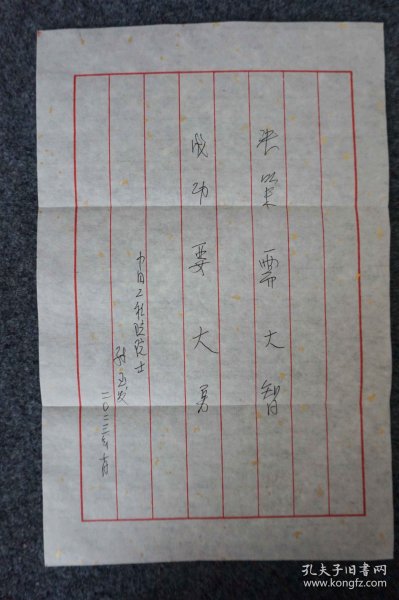 决策需大智
成功要大勇
中国工程院院士
孙玉发
二〇二三年十月
孔夫子旧书网
www.kongfz.com